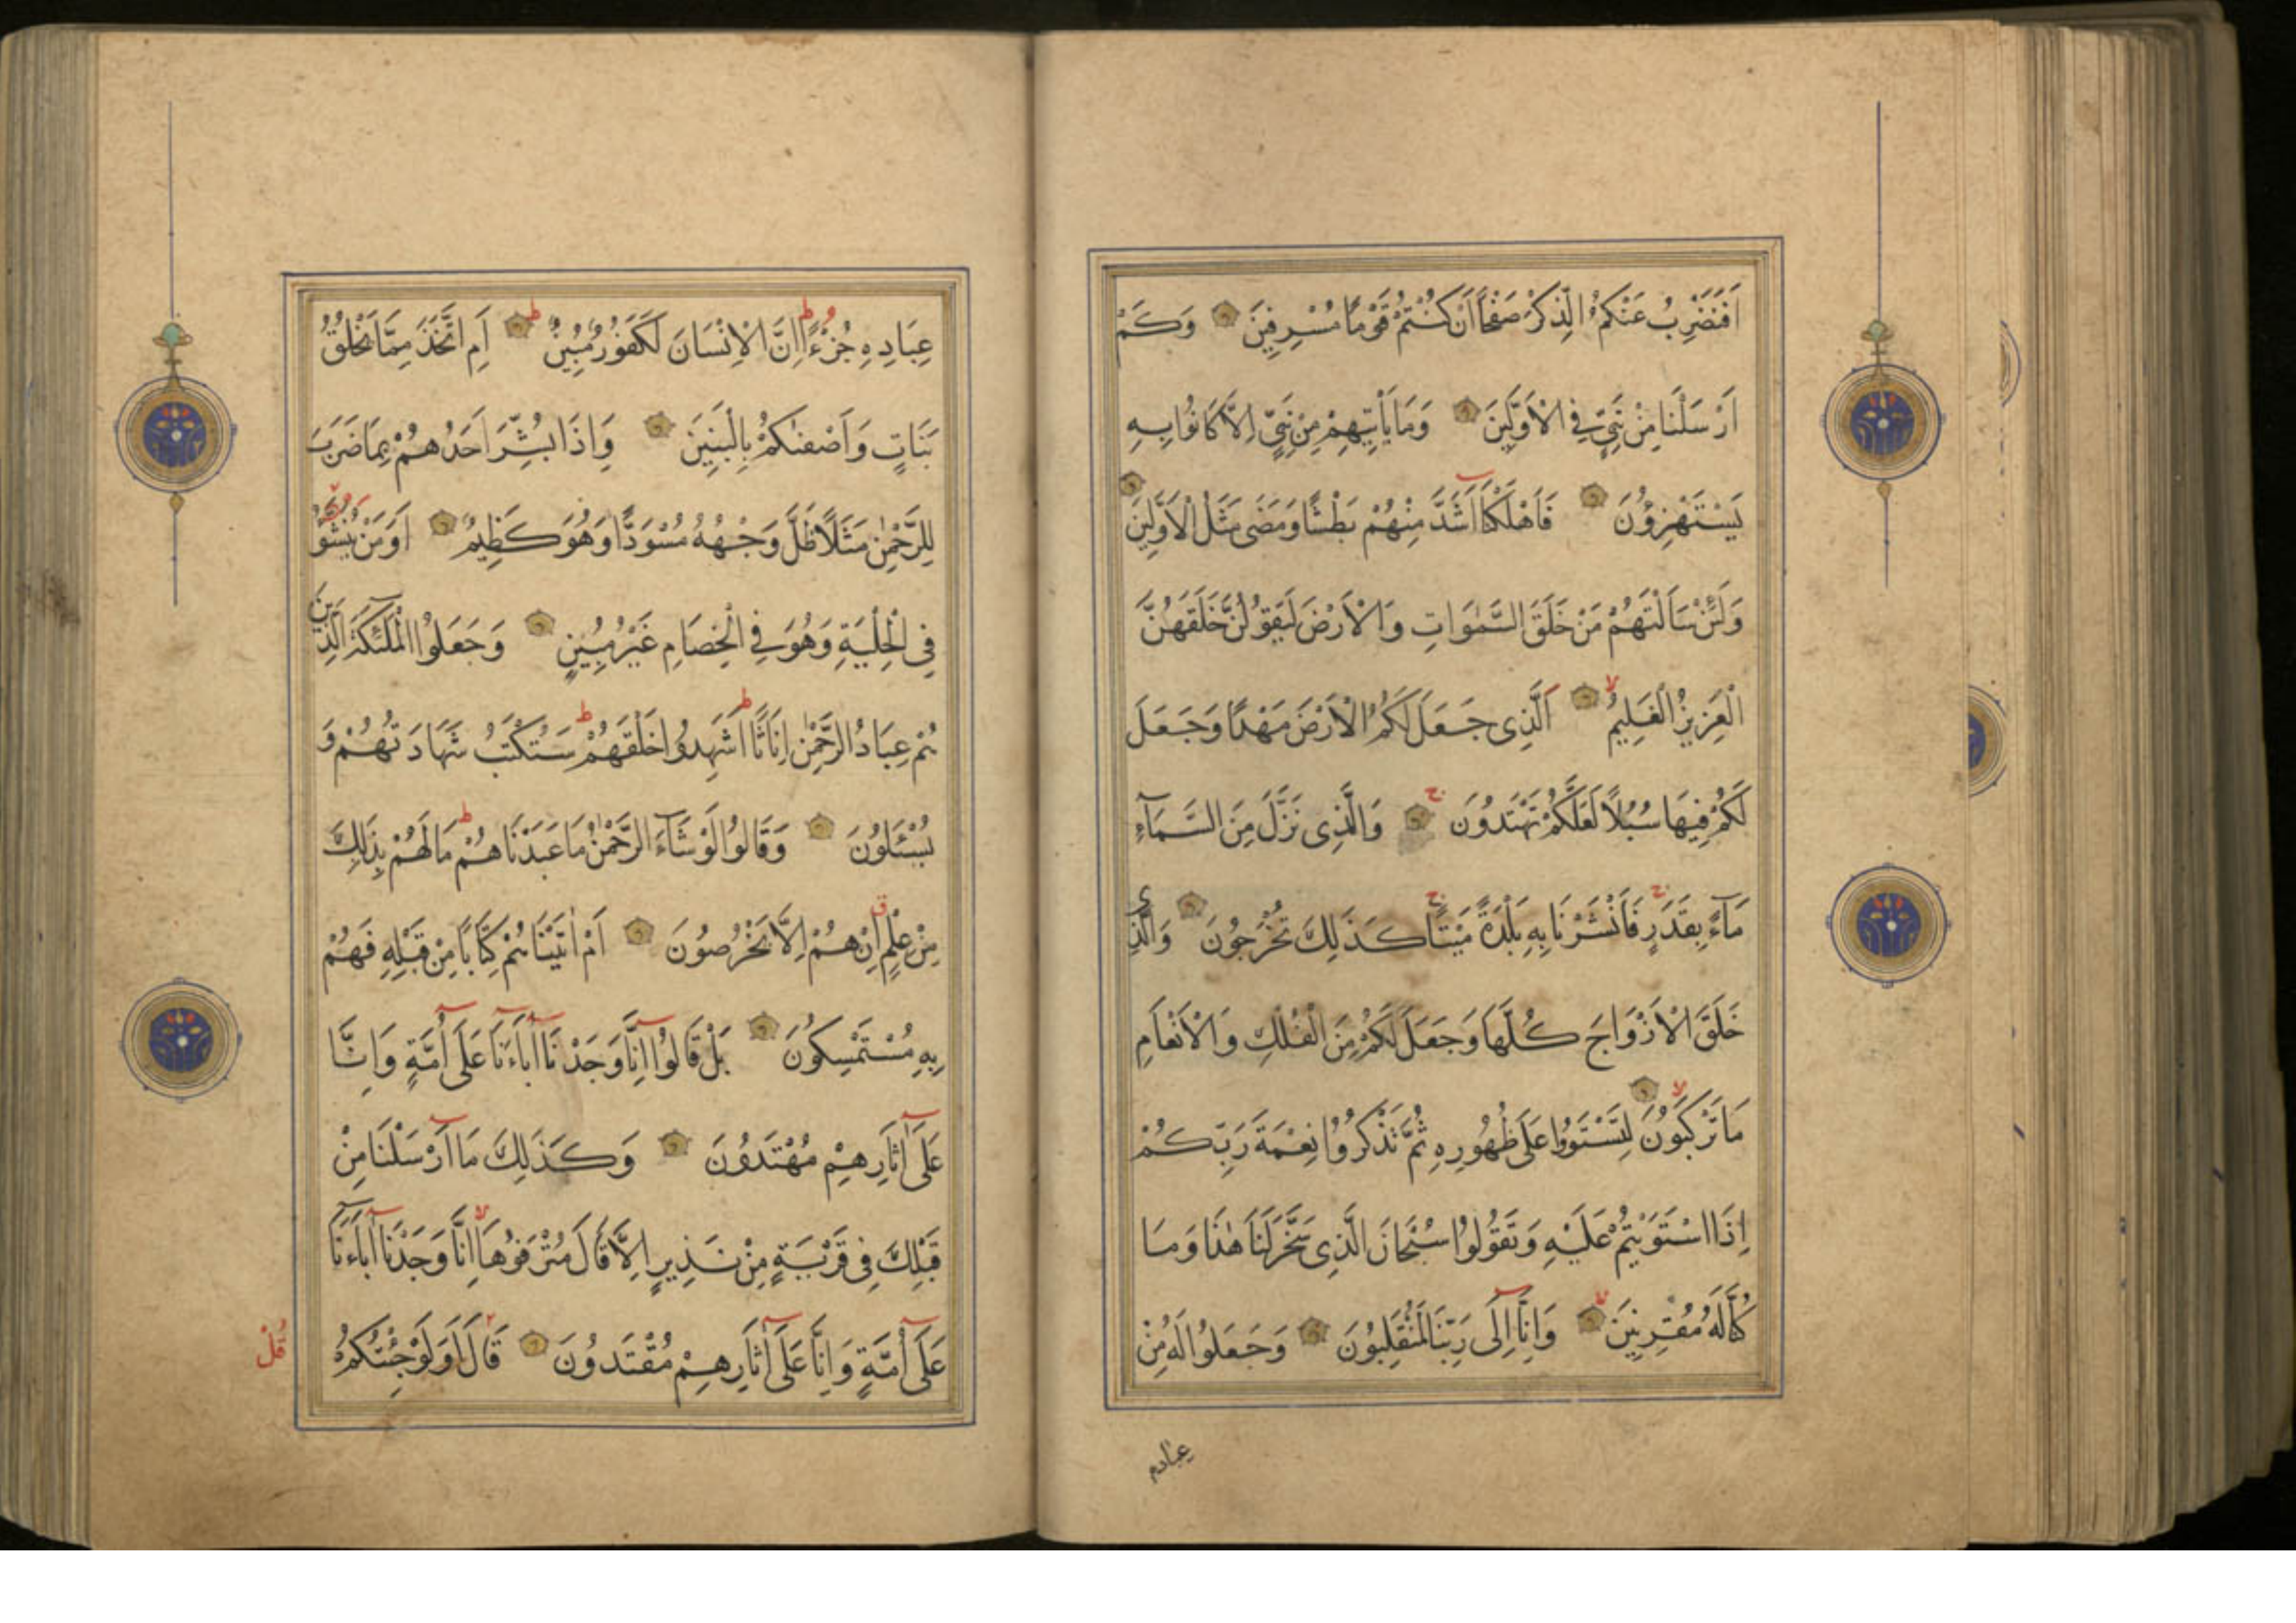 اَفَنَضْرِبُ عَنْكُمُ الذِّكْرَ صَفْحًا اَنْ كُنْتُمْ قَوْمًا مُسْرِفِينَ وَكَمْ
اَرْسَلْنَا مِنْ نَبِيٍّ فِي الْاَوَّلِينَ وَمَا يَأْتِيهِمْ مِنْ نَبِيٍّ اِلَّا كَانُوا بِهِ
يَسْتَهْزِؤُنَ فَاَهْلَكْنَا اَشَدَّ مِنْهُمْ بَطْشًا وَمَضَى مَثَلُ الْاَوَّلِينَ
وَلَئِنْ سَاَلْتَهُمْ مَنْ خَلَقَ السَّمٰوَاتِ وَالْاَرْضَ لَيَقُولُنَّ خَلَقَهُنَّ
الْعَزِيزُ الْعَلِيمُ اَلَّذِي جَعَلَ لَكُمُ الْاَرْضَ مَهْدًا وَجَعَلَ
لَكُمْ فِيهَا سُبُلًا لَعَلَّكُمْ تَهْتَدُونَ وَالَّذِي نَزَّلَ مِنَ السَّمَآءِ
مَآءً بِقَدَرٍ فَاَنْشَرْنَا بِهِ بَلْدَةً مَيْتًا كَذَلِكَ تُخْرَجُونَ وَالَّذِي
خَلَقَ الْاَزْوَاجَ كُلَّهَا وَجَعَلَ لَكُمْ مِنَ الْفُلْكِ وَالْاَنْعَامِ
مَا تَرْكَبُونَ لِتَسْتَوُوا عَلَى ظُهُورِهِ ثُمَّ تَذْكُرُوا نِعْمَةَ رَبِّكُمْ
اِذَا اسْتَوَيْتُمْ عَلَيْهِ وَتَقُولُوا سُبْحَانَ الَّذِي سَخَّرَ لَنَا هٰذَا وَمَا
كُنَّا لَهُ مُقْرِنِينَ وَاِنَّا اِلَى رَبِّنَا لَمُنْقَلِبُونَ وَجَعَلُوا لَهُ مِنْ
عِبَادِهِ
عِبَادِهِ جُزْءًا اِنَّ الْاِنْسَانَ لَكَفُورٌ مُبِينٌ اَمِ اتَّخَذَ مِمَّا يَخْلُقُ
بَنَاتٍ وَاَصْفٰىكُمْ بِالْبَنِينَ وَاِذَا بُشِّرَ اَحَدُهُمْ بِمَا ضَرَبَ
لِلرَّحْمٰنِ مَثَلًا ظَلَّ وَجْهُهُ مُسْوَدًّا وَهُوَ كَظِيمٌ اَوَمَنْ يُنَشَّؤُ
فِي الْحِلْيَةِ وَهُوَ فِي الْخِصَامِ غَيْرُ مُبِينٍ وَجَعَلُوا الْمَلٰئِكَةَ الَّذِينَ
هُمْ عِبَادُ الرَّحْمٰنِ اِنَاثًا اَشَهِدُوا خَلْقَهُمْ سَتُكْتَبُ شَهَادَتُهُمْ وَ
يُسْئَلُونَ وَقَالُوا لَوْ شَآءَ الرَّحْمٰنُ مَا عَبَدْنَاهُمْ مَا لَهُمْ بِذَلِكَ
مِنْ عِلْمٍ اِنْ هُمْ اِلَّا يَخْرُصُونَ اَمْ اٰتَيْنَاهُمْ كِتَابًا مِنْ قَبْلِهِ فَهُمْ
بِهِ مُسْتَمْسِكُونَ بَلْ قَالُوا اِنَّا وَجَدْنَا اٰبَاءَنَا عَلَى اُمَّةٍ وَاِنَّا
عَلَى اٰثَارِهِمْ مُهْتَدُونَ وَكَذَلِكَ مَا اَرْسَلْنَا مِنْ
قَبْلِكَ فِي قَرْيَةٍ مِنْ نَذِيرٍ اِلَّا قَالَ مُتْرَفُوهَا اِنَّا وَجَدْنَا اٰبَاءَنَا
عَلَى اُمَّةٍ وَاِنَّا عَلَى اٰثَارِهِمْ مُقْتَدُونَ قَالَ اَوَلَوْ جِئْتُكُمْ
قُلْ